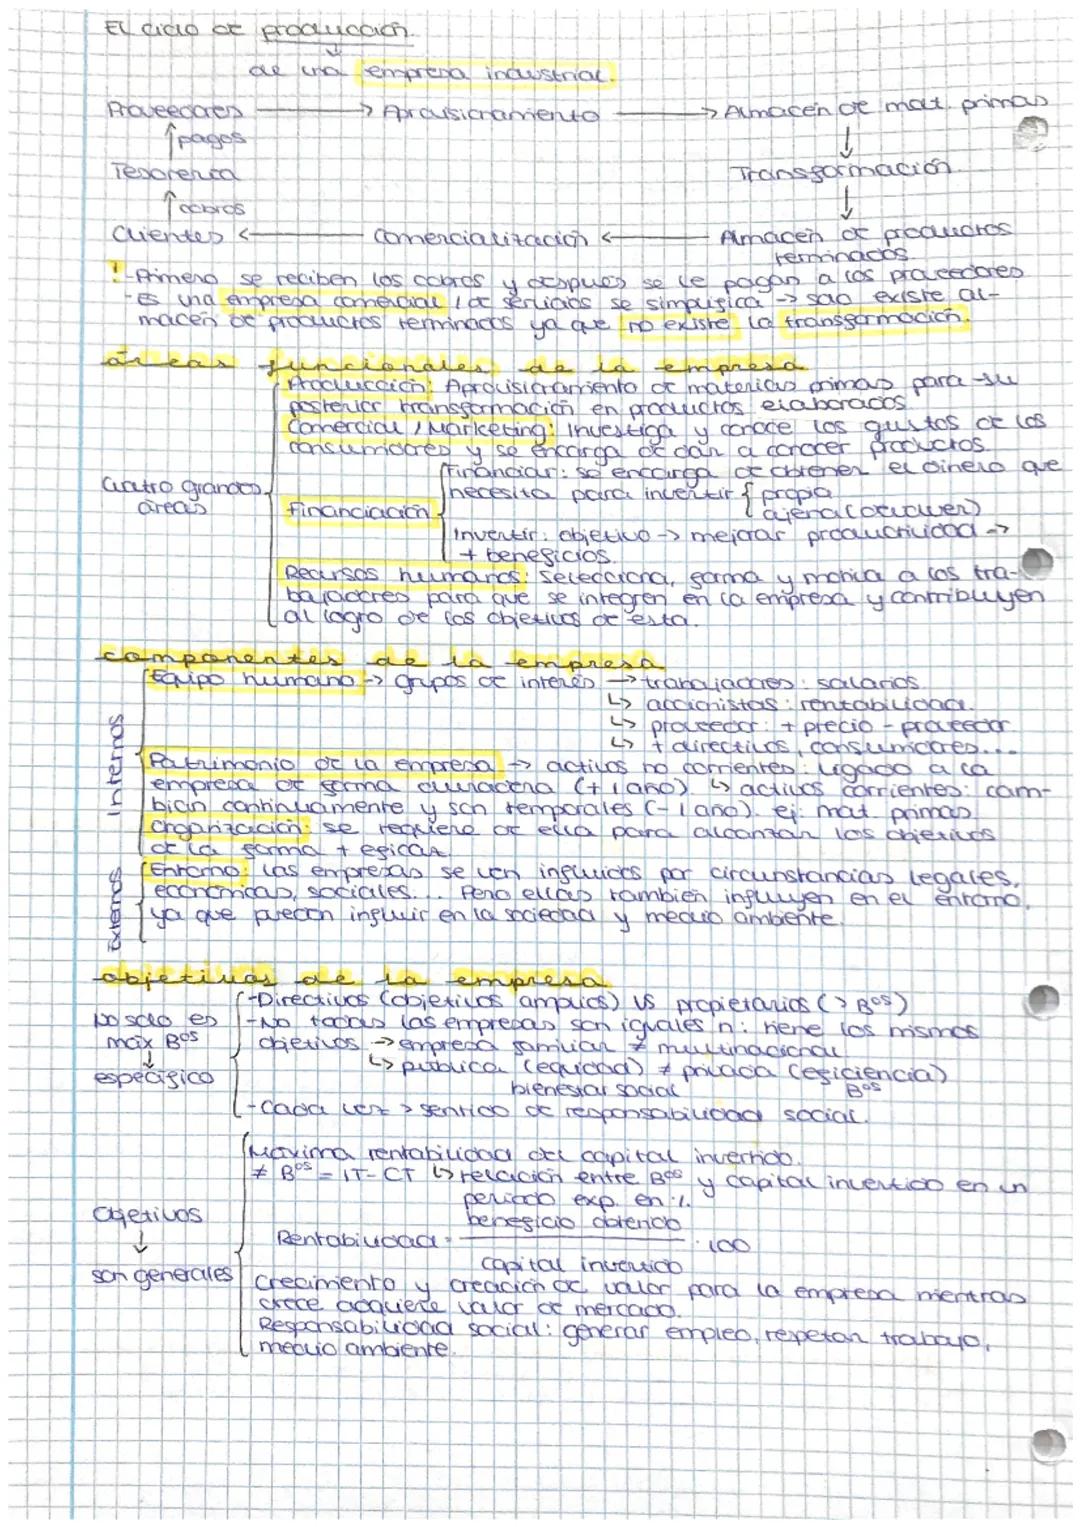 El ciclo de producción.
de una empresa industrial.
Proveedores → Aprovisionamiento → Almacén de mat. primas
↑ pagos ↓
Tesorería Transformación
↑ cobros ↓
Clientes ← Comercialización ← Almacén de productos
terminados.
! - Primero se reciben los cobros y después se le pagan a los proveedores
- Es una empresa comercial / de servicios se simplifica → solo existe al-
macén de productos terminados ya que no existe la transformación.
áreas funcionales de la empresa
Producción: Aprovisionamiento de materias primas para su
posterior transformación en productos elaborados.
Comercial / Marketing: Investiga y conoce los gustos de los
consumidores y se encarga de dar a conocer productos.
Cuatro grandes áreas
Financiación
Financiar: se encarga de obtener el dinero que
necesita para invertir { propia
ajena (devolver)
Invertir: objetivo → mejorar productividad →
+ beneficios.
Recursos humanos: Selecciona, forma y motiva a los tra-
bajadores para que se integren en la empresa y contribuyen
al logro de los objetivos de esta.
componentes de la empresa
Internos
Equipo humano → grupos de interés → trabajadores: salarios
↳ accionistas: rentabilidad.
↳ proveedor: + precio - proveedor.
↳ + directivos, consumidores...
Patrimonio de la empresa → activos no corrientes: ligado a la
empresa de forma duradera (+1 año). ↳ activos corrientes: cam-
bian continuamente y son temporales (-1 año). ej: mat. primas.
Organización: se requiere de ella para alcanzar los objetivos
de la forma + eficaz.
Externos
Entorno: Las empresas se ven influidas por circunstancias legales,
económicas, sociales... Pero ellas también influyen en el entorno,
ya que pueden influir en la sociedad y medio ambiente.
objetivos de la empresa
No solo es
máx Bos
↓
específico
- Directivos (objetivos amplios) vs propietarios (> Bos)
- No todas las empresas son iguales n: tiene los mismos
objetivos → empresa familiar ≠ multinacional
↳ pública (equidad) ≠ privada (eficiencia)
bienestar social Bos
- Cada vez > sentido de responsabilidad social.
Objetivos
↓
son generales
Máxima rentabilidad del capital invertido.
≠ Bos = IT - CT ↳ relación entre Bos y capital invertido en un
periodo exp. en %.
beneficio obtenido
Rentabilidad = · 100
capital invertido
Crecimiento y creación de valor para la empresa mientras
crece adquiere valor de mercado.
Responsabilidad social: generar empleo, respetar trabajo,
medio ambiente.